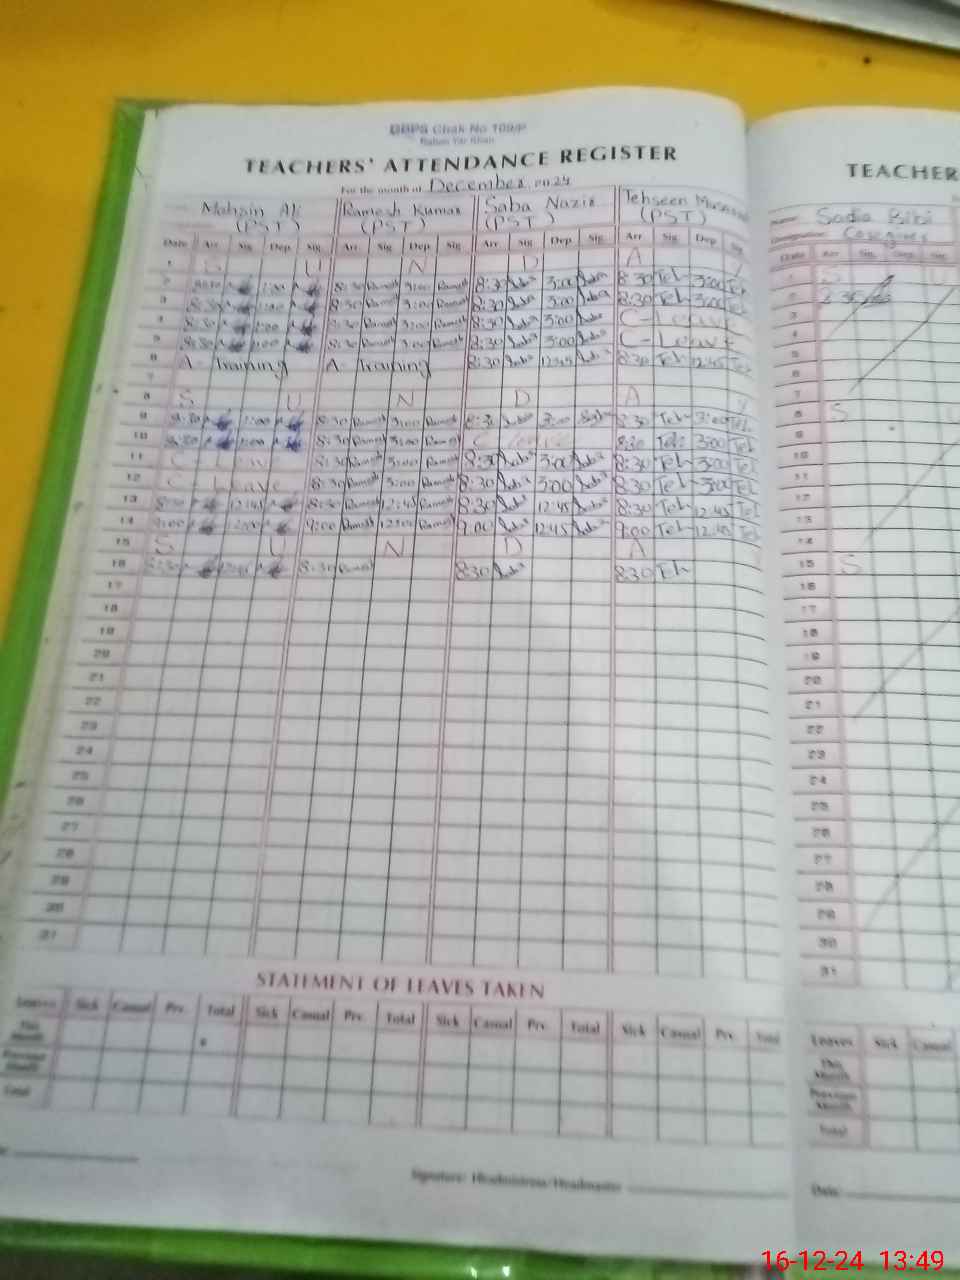 GBPS Chak No 109/P
Rahim Yar Khan
TEACHERS' ATTENDANCE REGISTER
For the month of December 2024
Mohsin Ali Ramesh Kumar Saba Nazir Tehseen
(PST) (PST) (PST) (PST)
Date Arr. Sig. Dep. Sig. Arr. Sig. Dep. Sig. Arr. Sig. Dep. Sig. Arr. Sig. Dep. Sig.
1 S U N D A Y
2 8:30 8:30 Ramesh 3:00 Ramesh 8:30 Saba 3:00 Saba 8:30 Teh 3:00 Teh
3 8:30 8:30 Ramesh 3:00 Ramesh 8:30 Saba 3:00 Saba 8:30 Teh 3:00 Teh
4 8:30 8:30 Ramesh 3:00 Ramesh 8:30 Saba 3:00 Saba C-Leave
5 8:30 8:30 Ramesh 3:00 Ramesh 8:30 Saba 3:00 Saba C-Leave
6 A-Training A-Training 8:30 Saba 12:45 Saba 8:30 Teh 12:45 Teh
7
8 S U N D A Y
9 8:30 8:30 Ramesh 3:00 Ramesh 8:30 Saba 3:00 Saba 8:30 Teh 3:00 Teh
10 8:30 8:30 Ramesh 3:00 Ramesh C Leave 8:30 Teh 3:00 Teh
11 C-Leave 8:30 Ramesh 3:00 Ramesh 8:30 Saba 3:00 Saba 8:30 Teh 3:00 Teh
12 C-Leave 8:30 Ramesh 3:00 Ramesh 8:30 Saba 3:00 Saba 8:30 Teh 3:00 Teh
13 8:30 12:45 8:30 Ramesh 12:45 Ramesh 8:30 Saba 12:45 Saba 8:30 Teh 12:45 Teh
14 9:00 9:00 Ramesh Ramesh 9:00 Saba 12:45 Saba 9:00 Teh 12:45 Teh
15 S U N D A
16 8:30 8:30 Ramesh 8:30 Saba 8:30 Teh
17
18
19
20
21
22
23
24
25
26
27
28
29
30
31
STATEMENT OF LEAVES TAKEN
Leaves Sick Casual Prv. Total Sick Casual Prv. Total Sick Casual Prv. Total Sick Casual Prv. Total
This Month
Previous Month
Total
Signature: Headmistress/Headmaster
TEACHER
Name: Sadia Bibi
Designation: Caregiver
Date Arr. Sig. Dep. Sig.
1 S U
2
3
4
5
6
7
8 S
9
10
11
12
13
14
15 S
16
17
18
19
20
21
22
23
24
25
26
27
28
29
30
31
Leaves Sick Casual
This Month
Previous Month
Total
Date:
16-12-24 13:49